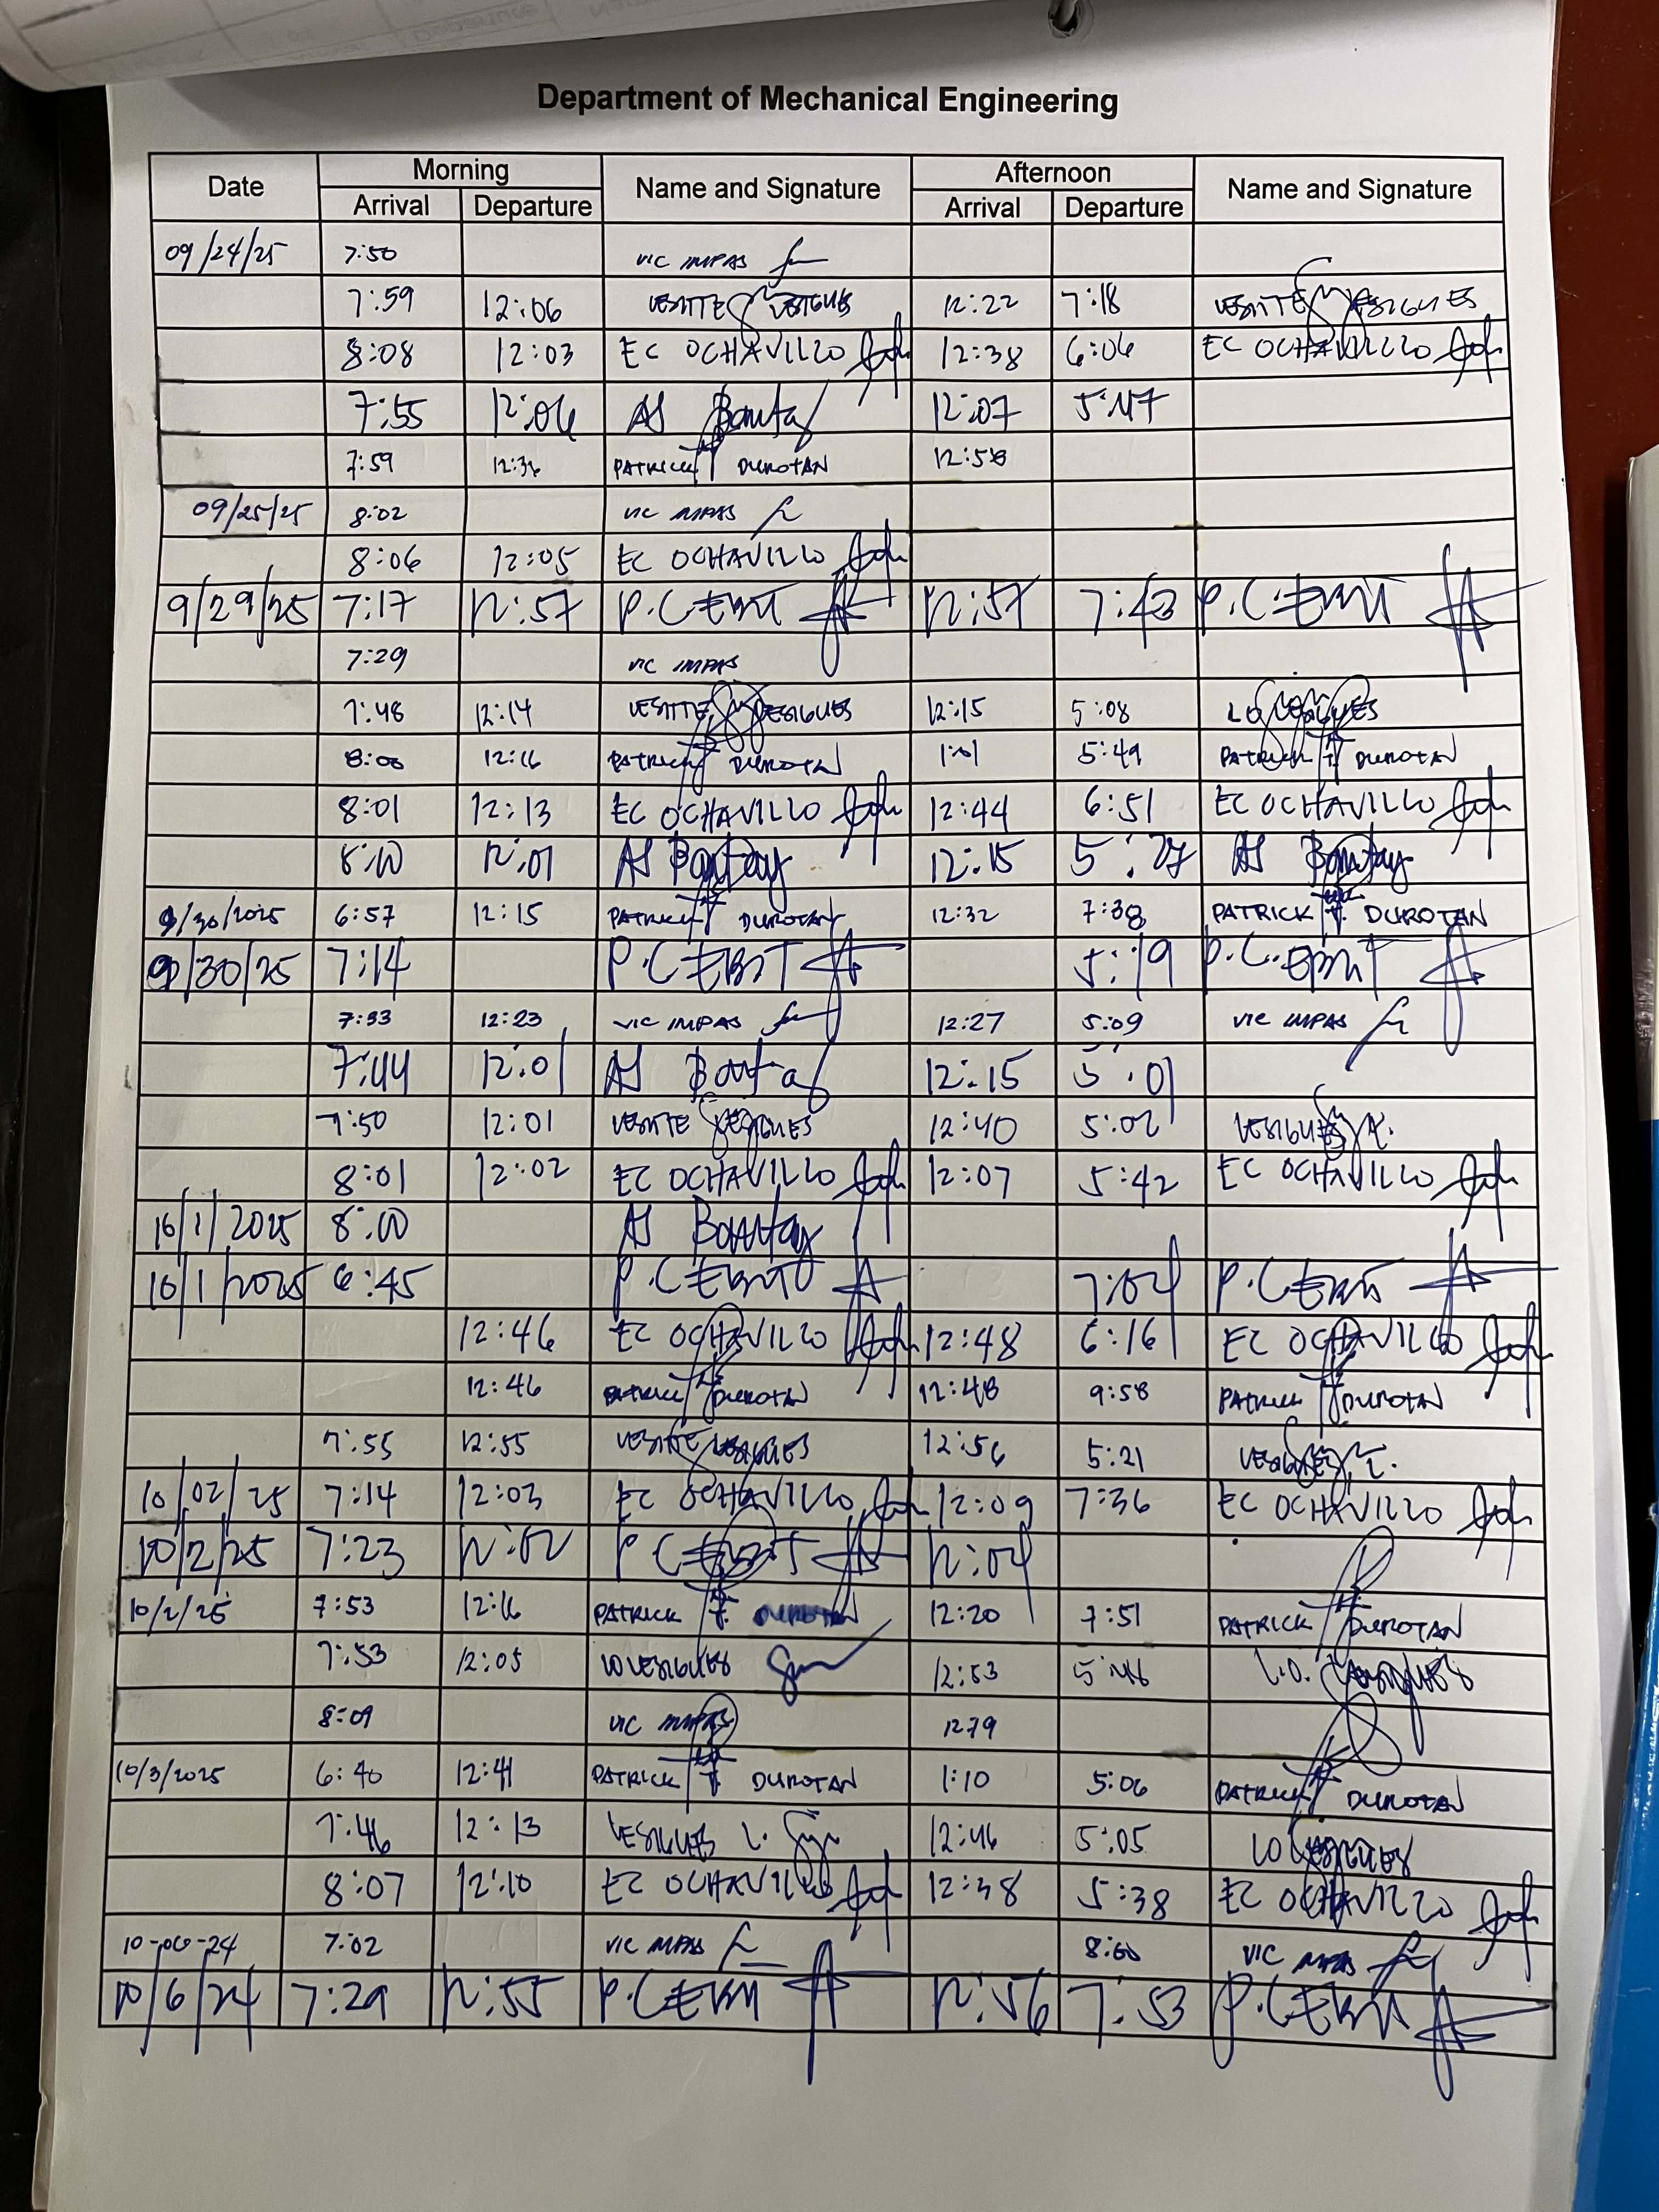 Department of Mechanical Engineering
Date Morning Name and Signature Afternoon Name and Signature
Arrival Departure Arrival Departure
09/24/25 7:50 VIC IMPAS
7:59 12:06 12:22 7:18
8:08 12:03 EC OCHAVILLO 12:38 6:06 EC OCHAVILLO
7:55 12:06 AS 12:07 5:47
7:59 PATRICK DUROTAN 12:58
09/25/25 8:02 VIC IMPAS
8:06 12:05 EC OCHAVILLO
9/29/25 7:17 12:57 12:57 7:43
7:29 VIC IMPAS
7:48 12:14 12:15 5:08
8:00 12:16 PATRICK DUROTAN 1:01 5:49 PATRICK T. DUROTAN
8:01 12:13 EC OCHAVILLO 12:44 6:51 EC OCHAVILLO
8:00 12:01 AS 12:15 5:27 AS
9/30/2025 6:57 12:15 PATRICK T. DUROTAN 12:32 7:38 PATRICK T. DUROTAN
9/30/25 7:14 5:19
7:33 12:23 VIC IMPAS 12:27 5:09 VIC IMPAS
7:44 12:01 AS 12:15 5:01
7:50 12:01 12:40 5:02
8:01 12:02 EC OCHAVILLO 12:07 5:42 EC OCHAVILLO
10/1/2025 8:00 AS
10/1/2025 6:45 7:04
12:46 EC OCHAVILLO 12:48 6:16 EC OCHAVILLO
12:46 PATRICK DUROTAN 12:48 9:58 PATRICK DUROTAN
7:55 12:55 12:56 5:21
10/02/25 7:14 12:03 EC OCHAVILLO 12:09 7:36 EC OCHAVILLO
10/2/25 7:23 12:02 12:04
10/2/25 7:53 12:16 PATRICK T. DUROTAN 12:20 7:51 PATRICK DUROTAN
7:53 12:05 12:53 5:46 L.O.
8:09 VIC IMPAS 1279
10/3/2025 6:40 12:41 PATRICK T. DUROTAN 1:10 5:06 PATRICK DUROTAN
7:46 12:13 12:46 5:05 LO
8:07 12:10 EC OCHAVILLO 12:38 5:38 EC OCHAVILLO
10-06-24 7:02 VIC IMPAS 8:00 VIC IMPAS
10/6/24 7:29 12:55 12:56 7:53